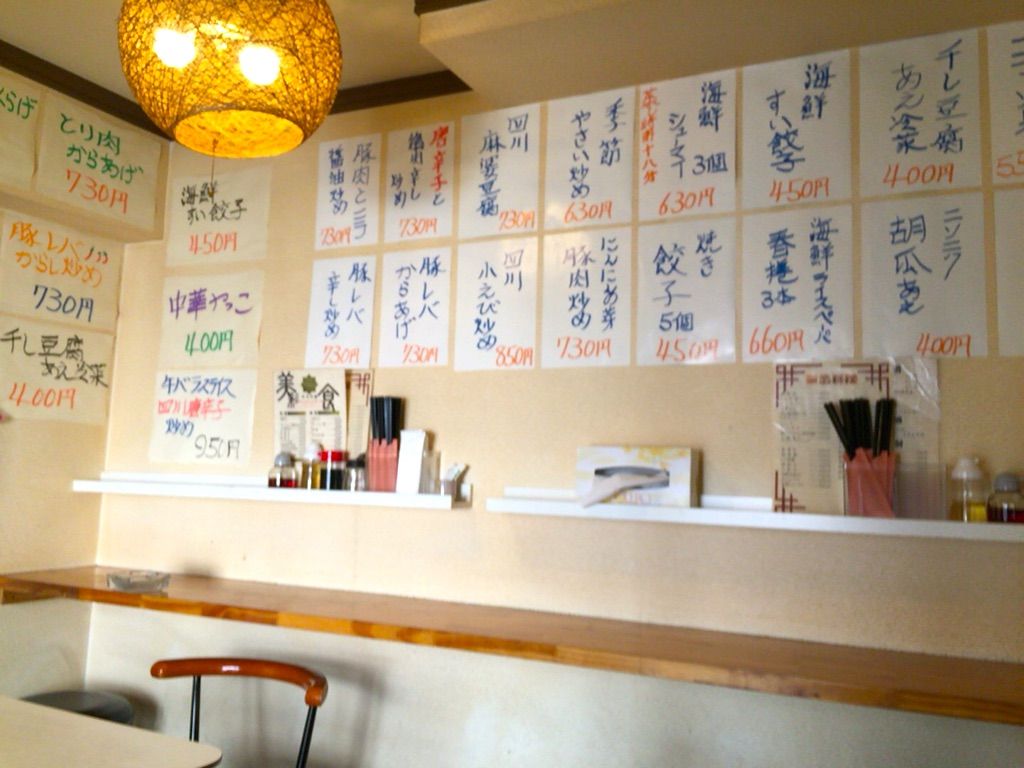 からげ
とり肉
からあげ
730円
豚レバノ
からし炒め
730円
干し豆腐
あえ冷菜
400円
海鮮
すい餃子
450円
中華やっこ
400円
牛バラスライス
四川唐辛子
炒め
950円
豚肉とニラ
醤油炒め
730円
唐辛子と
鶏肉辛し
炒め
730円
四川
麻婆豆腐
730円
季節
やさい炒め
630円
海鮮 3個
シューマイ
630円
海鮮
すい餃子
450円
干し豆腐
あえ冷菜
400円
豚レバ
辛し炒め
730円
豚レバ
からあげ
730円
四川
小えび炒め
850円
にんにくの芽
豚肉炒め
730円
焼き
餃子 5個
450円
海鮮ライスペーパー
春捲 3本
660円
ニンニク
胡瓜あえ
400円
美食